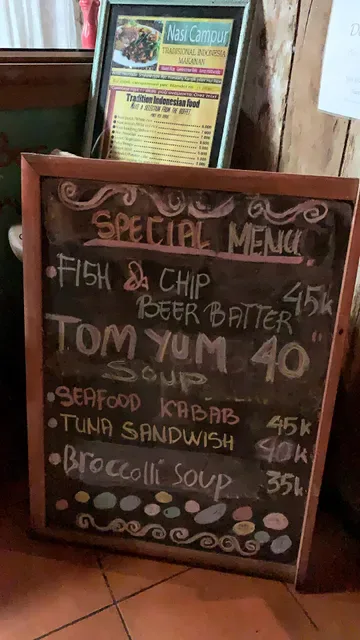 Nasi Campur
TRADITIONAL INDONESIA
MAKANAN
Tradition Indonesian food
SPECIAL MENU
FISH & CHIP
BEER BATTER 45k
TOM YUM 40"
SOUP
SEAFOOD KABAB 45k
TUNA SANDWISH 40k
Broccolli Soup 35k